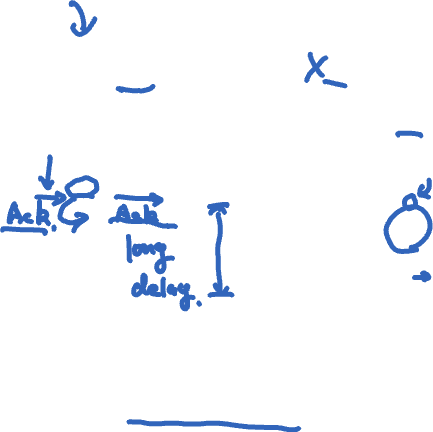 X_
Ack. Ack
long
delay.